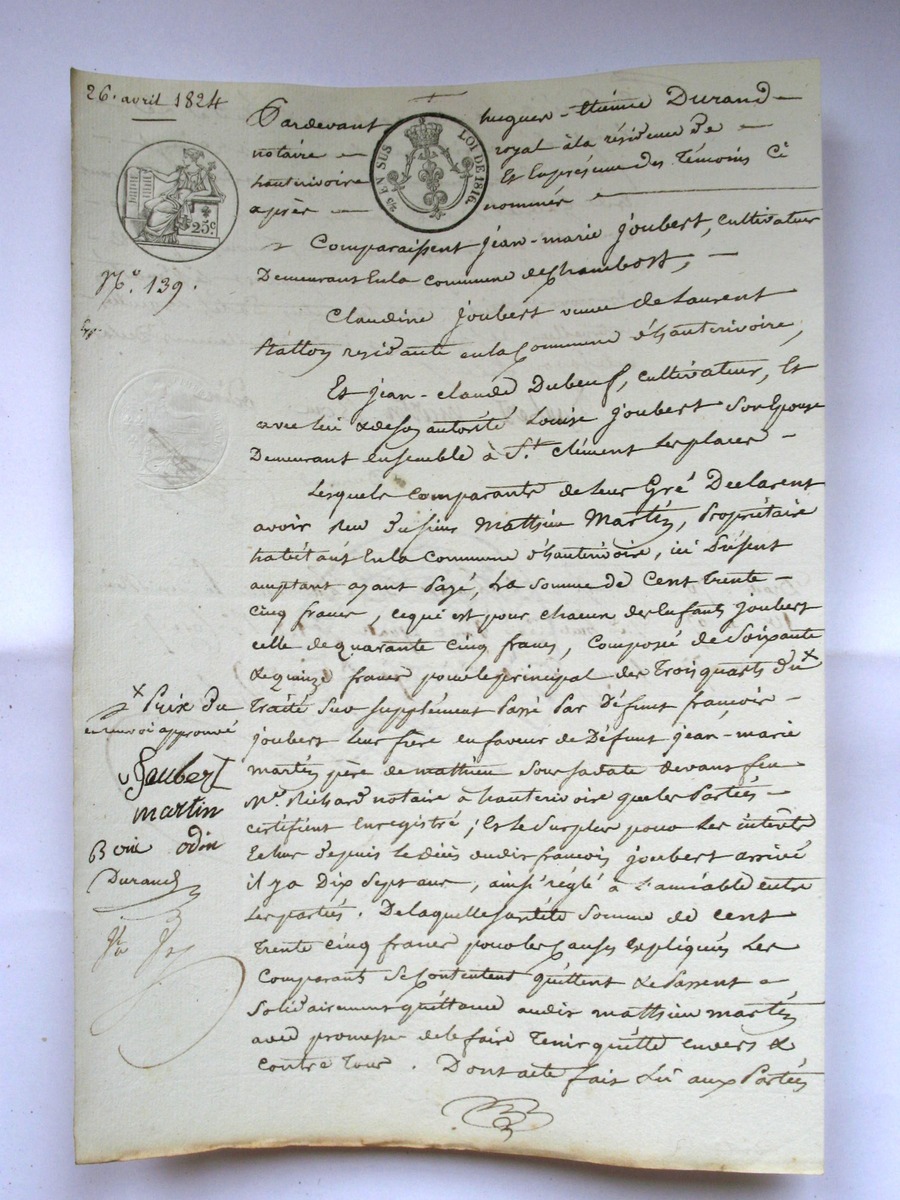 26. avril 1824
Pardevant hugues-étienne Durand
notaire royal à la résidence de
hauterivoire Et Enprésence des Témoins Ci
après nommés
EN SUS LOI DE 1816.
25c
No. 139.
Comparaissent jean-marie joubert, cultivateur
Demeurant Enla commune deChambost,
Claudine joubert veuve deLaurent
résidante enlaCommune d'hauterivoire,
Et jean-claude Dubeuf, cultivateur, Et
avec lui &desonautorité Louise joubert SonEpouse
Demeurant ensemble à St. Clément Lesplaces
Lesquels comparants deleur Gré Declarent
avoir reçu dusieur Mathieu Martin, Propriétaire
habitant Enla Commune d'hauterivoire, ici Présent
acceptant ayant Payé, La Somme de Cent Trente
Cinq francs, cequi est pour chacun desEnfants Joubert
celle dequarante Cinq francs, Composée de Soixante
&quinze francs pourleprincipal des Troisquarts du x
Traité Sur Supplément Passé Par Défunt françois
joubert leur frère enfaveur deDéfunt jean-marie
martin père de mathieu Sous sadate devant feu
Me. Richard notaire à hauterivoire queles Parties
certifient Enregistré; Et leSurplus pour Les intérêts
Echus depuis le Décès dudit françois joubert arrivé
il ya Dix Sept ans, ainsi réglé à L'amiable entre
Lesparties. Delaquelle Somme de cent
Trente cinq francs pourles Causes Expliquées Les
Comparants SeContentent quittent &Passent
Solidairement quittance audit mathieu martin
avec promesse delefaire Tenir quitte envers &
Contre Tous. Dont acte fait Lu aux Parties
x Prix du
renvoi approuvé
Joubert
martin
odin
Durand